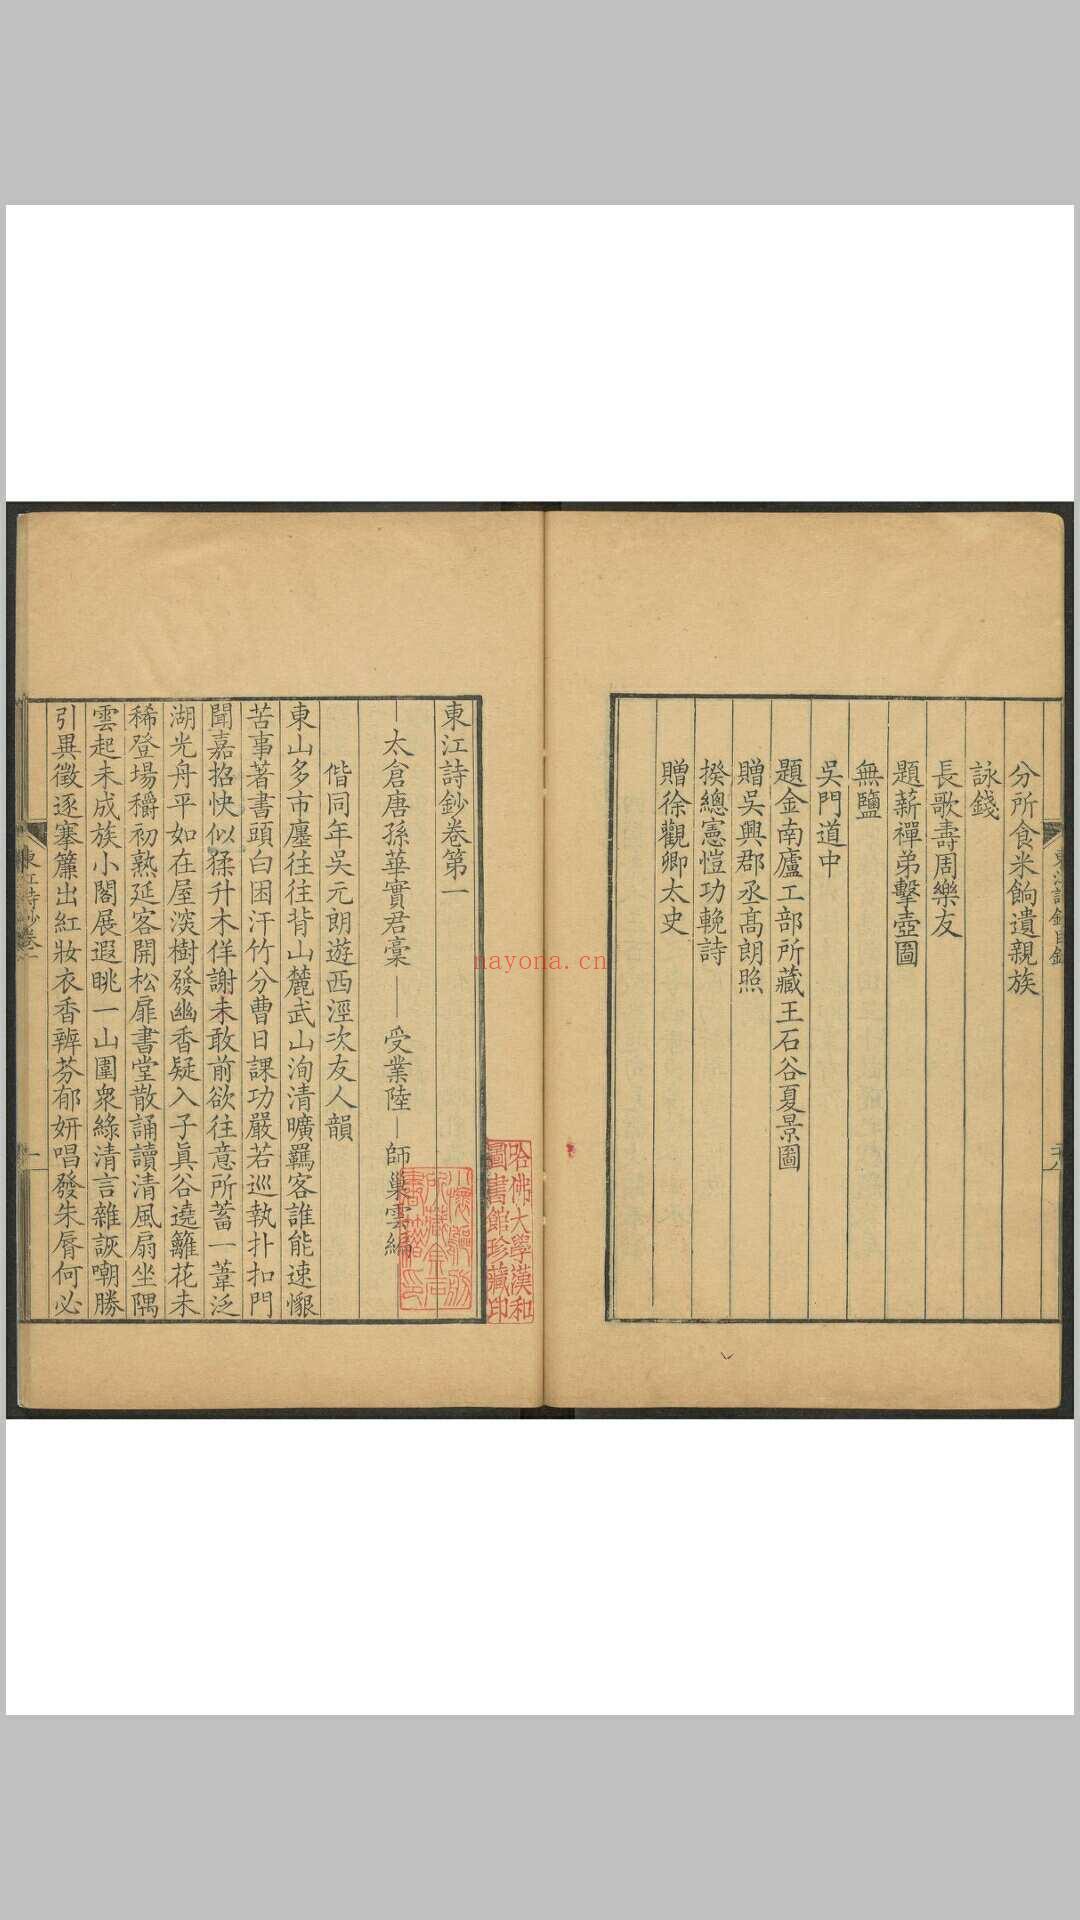 分所食米餉遺親族
詠錢
長歌壽周樂友
題薪禪弟擊壺圖
無鹽
吳門道中
題金南廬工部所藏王石谷夏景圖
贈吳興郡丞高朗照
揆總憲愷功輓詩
贈徐觀卿太史
東江詩鈔卷第一
太倉唐孫華實君稾
受業陸師巢雲編
偕同年吳元朗遊西涇次友人韻
東山多市廛往往背山麓武山洵清曠羈客誰能速懶
苦事著書頭白困汗竹分曹日課功嚴若巡執扑扣門
聞嘉招快似猱升木佯謝未敢前欲往意所蓄一葦泛
湖光舟平如在屋淡樹發幽香疑入子真谷遶籬花未
稀登場稬初熟延客開松扉書堂散誦讀清風扇坐隅
雲起未成族小閣展遐眺一山圍衆綠清言雜詼嘲勝
引異徵逐搴簾出紅妝衣香辨芬郁妍唱發朱脣何必
東江詩鈔卷一
一
哈佛大學漢和
圖書館珍藏印
nayona.cn